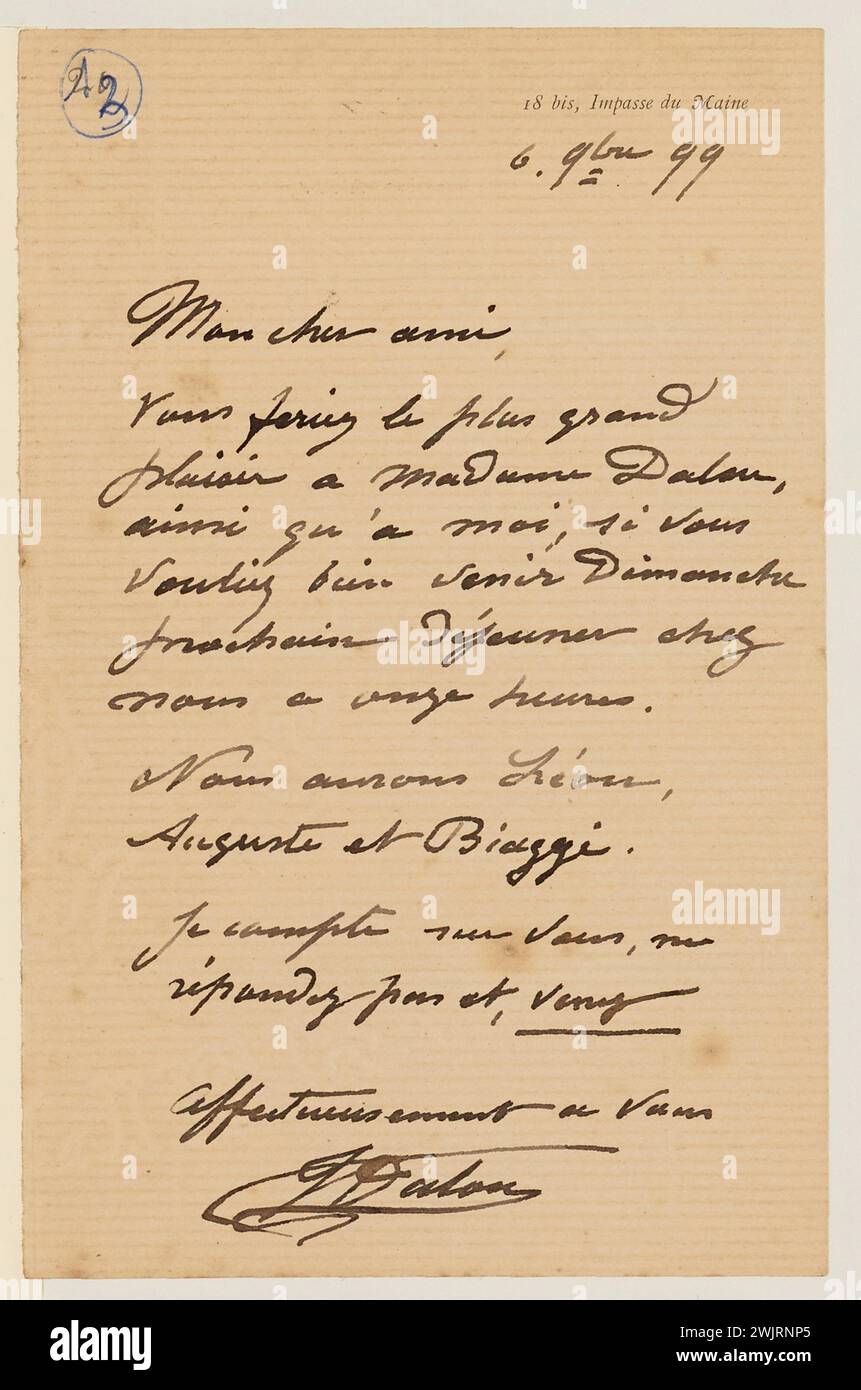 A
2
18 bis, Impasse du Maine
6. 9bre 99
Mon cher ami,
Vous feriez le plus grand
plaisir a Madame Dalou,
ainsi qu'a moi, si vous
vouliez bien venir Dimanche
prochain déjeuner chez
nous a onze heures.
Nous aurons Léon,
Auguste et Biaggi.
Je compte sur vous, ne
répondez pas et, venez
affectueusement a vous
J Dalou
alamy
Image ID: 2WJRNP5
www.alamy.com